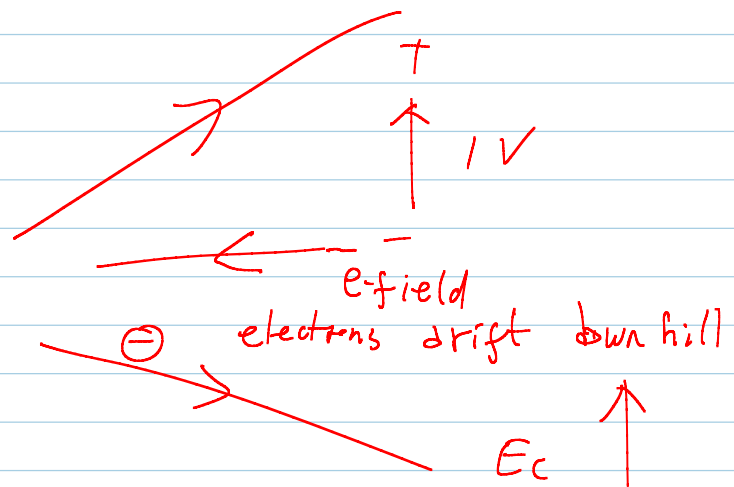 +
1 V
-
e-field
⊖ electrons drift downhill
Ec